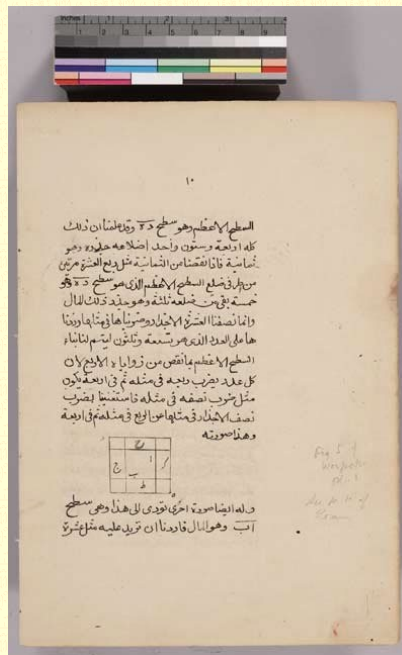 inches 1 2 3 4
١٠
السطح الاعظم وهو سطح دَه وقد علمنا ان ذلك
كله اربعة وستون واحد اضلاعه جذره وهو
ثمانية فاذا نقصنا من الثمانية مثل ربع العشرة مرتين
من طرفي ضلع السطح الاعظم الذى هو سطح دَه وهو
خمسة بقى من ضلعه ثلثة وهو جذر ذلك المال
وانما نصفنا العشرة الاجذار وضربناها فى مثلها وزدنا
ها على العدد الذى هو تسعة وثلثون ليتم لنا بناء
السطح الاعظم بما نقص من زواياه الاربع لان
كل عدد يضرب ربعه فى مثله ثم فى اربعة يكون
مثل ضرب نصفه فى مثله فاستغنينا بضرب
نصف الاجذار فى مثلها عن الربع فى مثله ثم فى اربعة
وهذا صورته
ح
ج ب ا
ط
ه
وله ايضا صورة اخرى تؤدى الى هذا وهى سطح
اَبَ وهو المال فاردنا ان نزيد عليه مثل عشرة
Fig 5